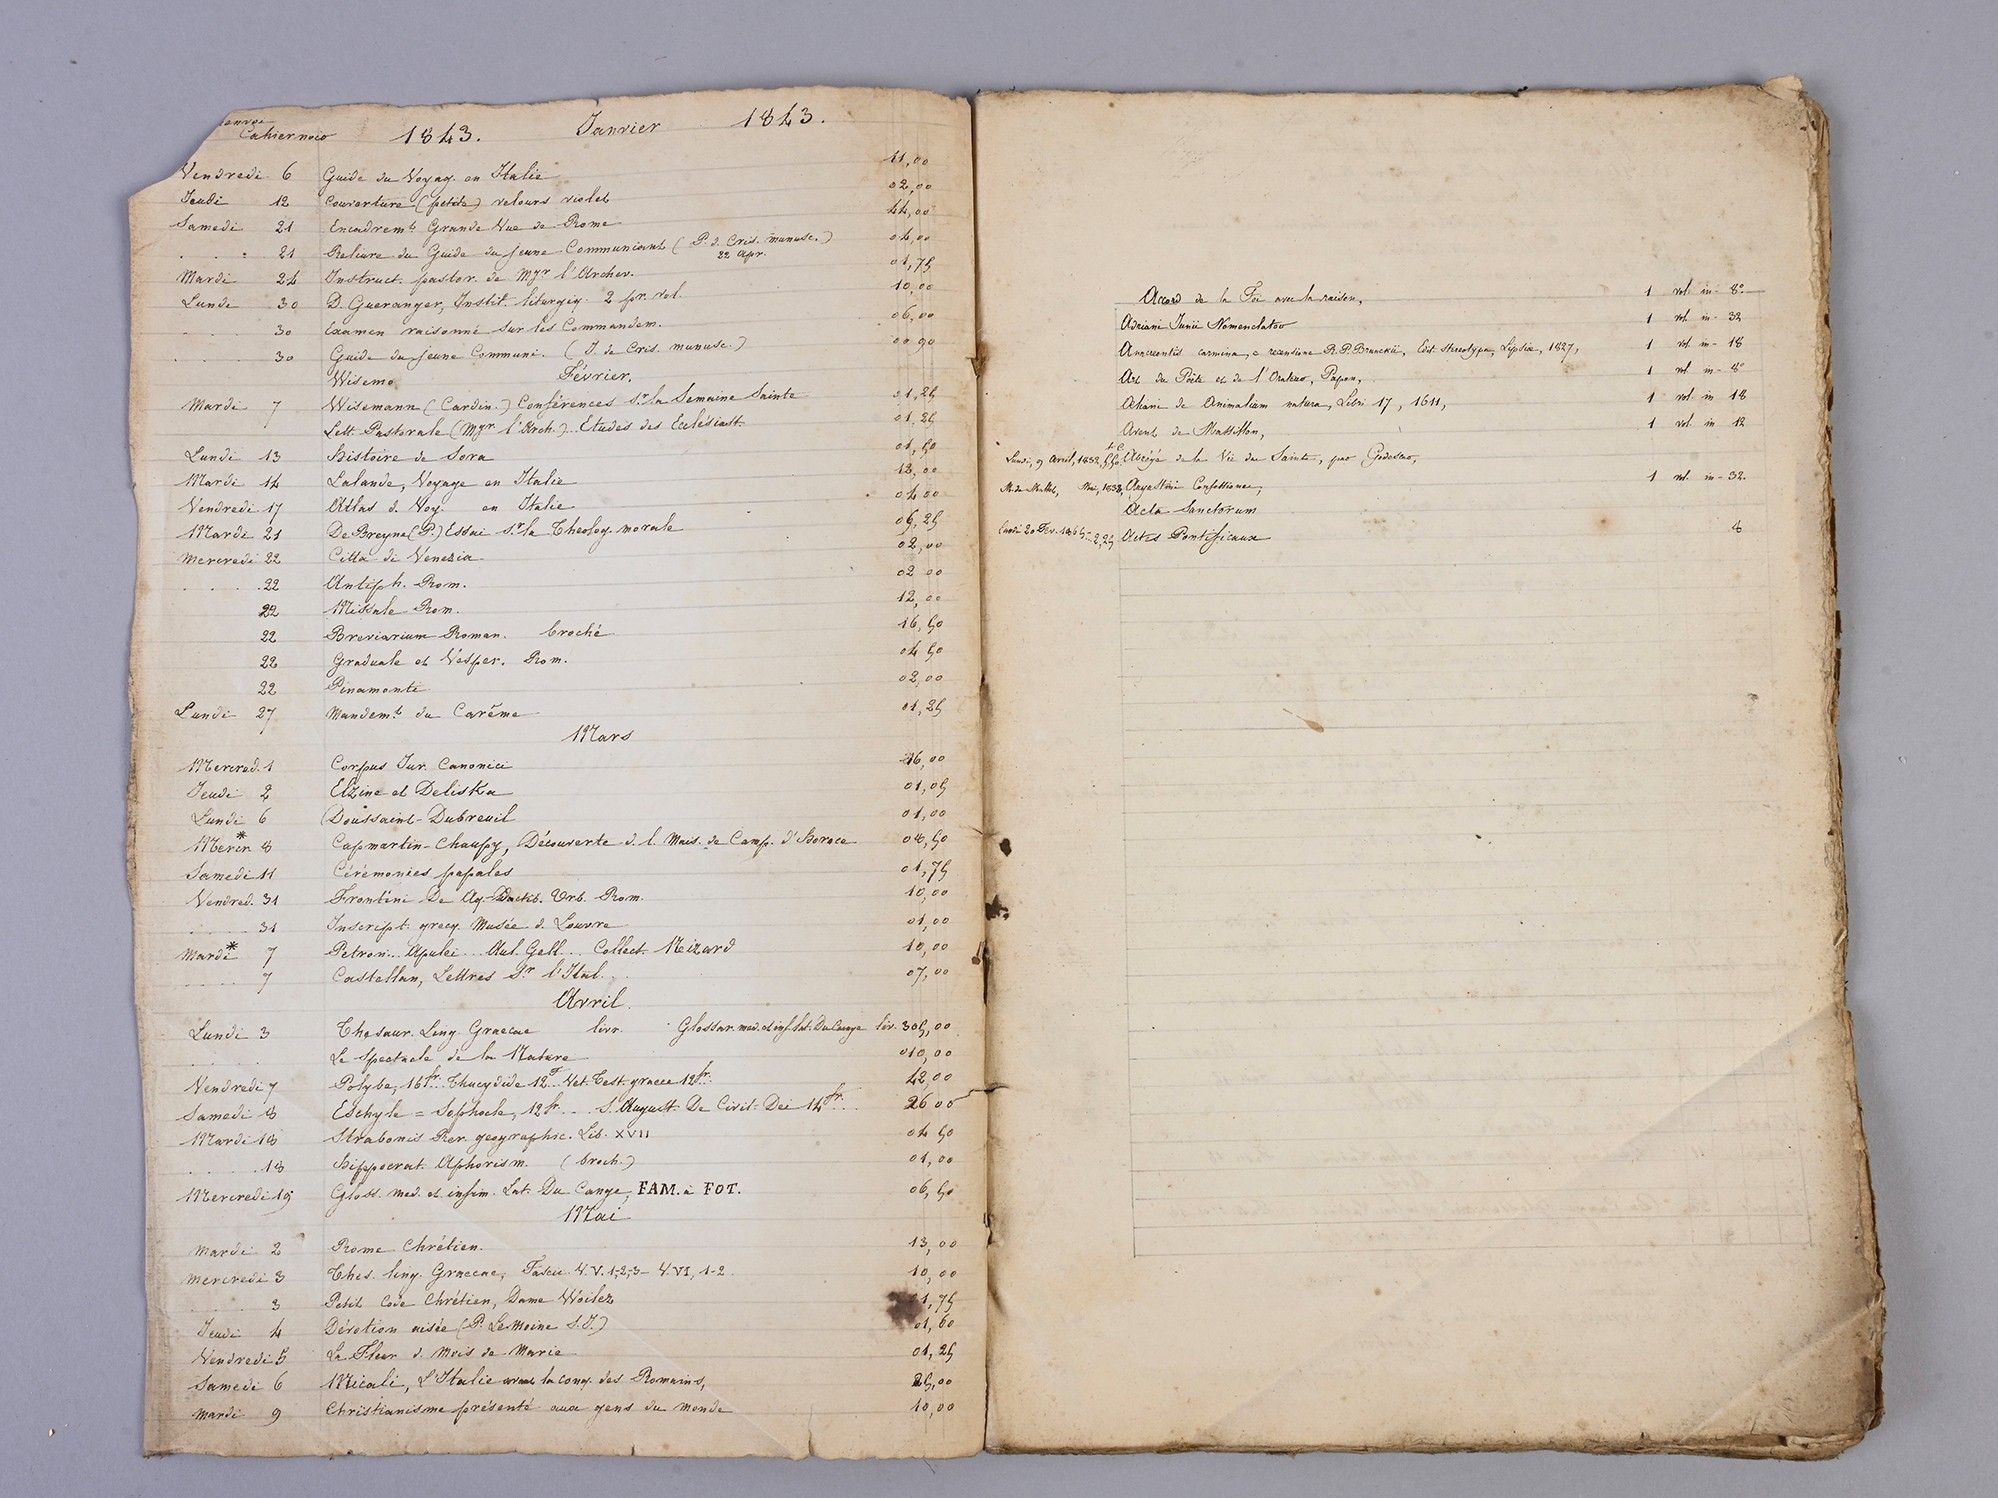 Cahier noir 1843. Janvier 1843.
Vendredi 6 Guide du Voyag. en Italie 11,00
Jeudi 12 Couverture (petite) velours violet 02,00
Samedi 21 Encadremt. Grande Vue de Rome 44,00
. . . . 21 Reliure du Guide du jeune Communiant (P. d. Cris. manusc.) 04,00
22 Apr.
Mardi 24 Instruct. pastor. de Mgr l'Archev. 01,75
Lundi 30 D. Gueranger, Instit. liturgiq. 2 pr. vol. 10,00
. . . 30 Examen raisonné sur les Commandem. 06,00
. . . . 30 Guide du jeune Communi. (J. de Cris. manusc.) 00 90
Wisemo Février.
Mardi 7 Wisemann (Cardin.) Conférences sr. la Semaine Sainte 01,25
Lett. Pastorale (Mgr l'Arch.) Etudes des Ecclésiast. 01,25
Lundi 13 Histoire de Sora 01,50
Mardi 14 Lalande, Voyage en Italie 12,00
Vendredi 17 Atlas d. Voy. en Italie 04 00
Mardi 21 De Breyne (P.) Essai sr. la Theolog. morale 06,25
Mercredi 22 Citta di Venezia 02,00
. . . . . 22 Antiph. Rom. 02 00
22 Missale Rom. 12,00
22 Breviarium Roman. broché 16,50
22 Graduale et Vesper. Rom. 04 50
22 Pinamonti 02,00
Lundi 27 Mandemt. du Carême 01,25
Mars
Mercred. 1 Corpus Jur. Canonici 26,00
Jeudi 2 Elzine et Deliska 01,05
Lundi 6 Doussaint-Dubreuil 01,00
Mercr* 8 Capmartin-Chaupy, Découverte d. l. Mais. de Camp. d'Horace 08,50
Samedi 11 Cérémonies papales 01,75
Vendred. 31 Frontini De Aq. Urb. Rom. 10,00
. . . . 31 Inscript. grecq. Musée d. Louvre 01,00
Mardi* 7 Petron... Apulei... Aul. Gell... Collect. Nizard 10,00
. . . . 7 Castellan, Lettres sr. l'Ital. . 07,00
Avril.
Lundi 3 Thesaur. Ling. Graecae livr. Glossar. med. et inf. lat. Du Cange liv. 305,00
. . . . Le Spectacle de la Nature 010,00
Vendredi 7 Polybe, 16fr.. Thucydide 12f.. Vet. Test. graece 12fr. 42,00
Samedi 8 Eschyle = Sophocle, 12fr... S. August. De Civit. Dei 14fr... 26 00
Mardi 18 Strabonis Rer. geographic. Lib. XVII 04 50
. . . . . . 18 Hippocrat. Aphorism. (broch.) 01,00
Mercredi 19 Gloss. med. et infim. Lat. Du Cange, FAM. à FOT. 06,50
Mai
Mardi 2 Rome Chrétien. 13,00
Mercredi 3 Thes. ling. Graecae, Fascic. V. V. 1-2-3- V. VI, 1-2. 10,00
. . . . 3 Petit Code Chrétien, Dame Woilez 01,75
Jeudi 4 Dévotion aisée (P. LeMoine S.J.) 01,60
Vendredi 5 La Fleur d. Mois de Marie 01,25
Samedi 6 Micali, L'Italie avant la conq. des Romains, 25,00
Mardi 9 Christianisme présenté aux gens du monde 10,00
Accord de la Foi avec la raison, 1 vol. in-8°.
Adriani Junii Nomenclator 1 vol. in-32
Anacreontis carmina, e recensione R.P. Brunckii, Edit. stereotypa, Lipsiae, 1827, 1 vol. in-18
Art du Poëte et de l'Orateur, Papon, 1 vol. in-8°
Aeliani de Animalium natura, Libri 17, 1611, 1 vol. in 18
Avent de Massillon, 1 vol. in 12
Lundi, 9 Avril, 1832, Abrégé de la Vie des Saints, par Godescar,
Mai, 1832, Augustini Confessiones, 1 vol. in-32.
Acta Sanctorum
Lundi 20 Fév. 1865 2,25 Actes Pontificaux 8